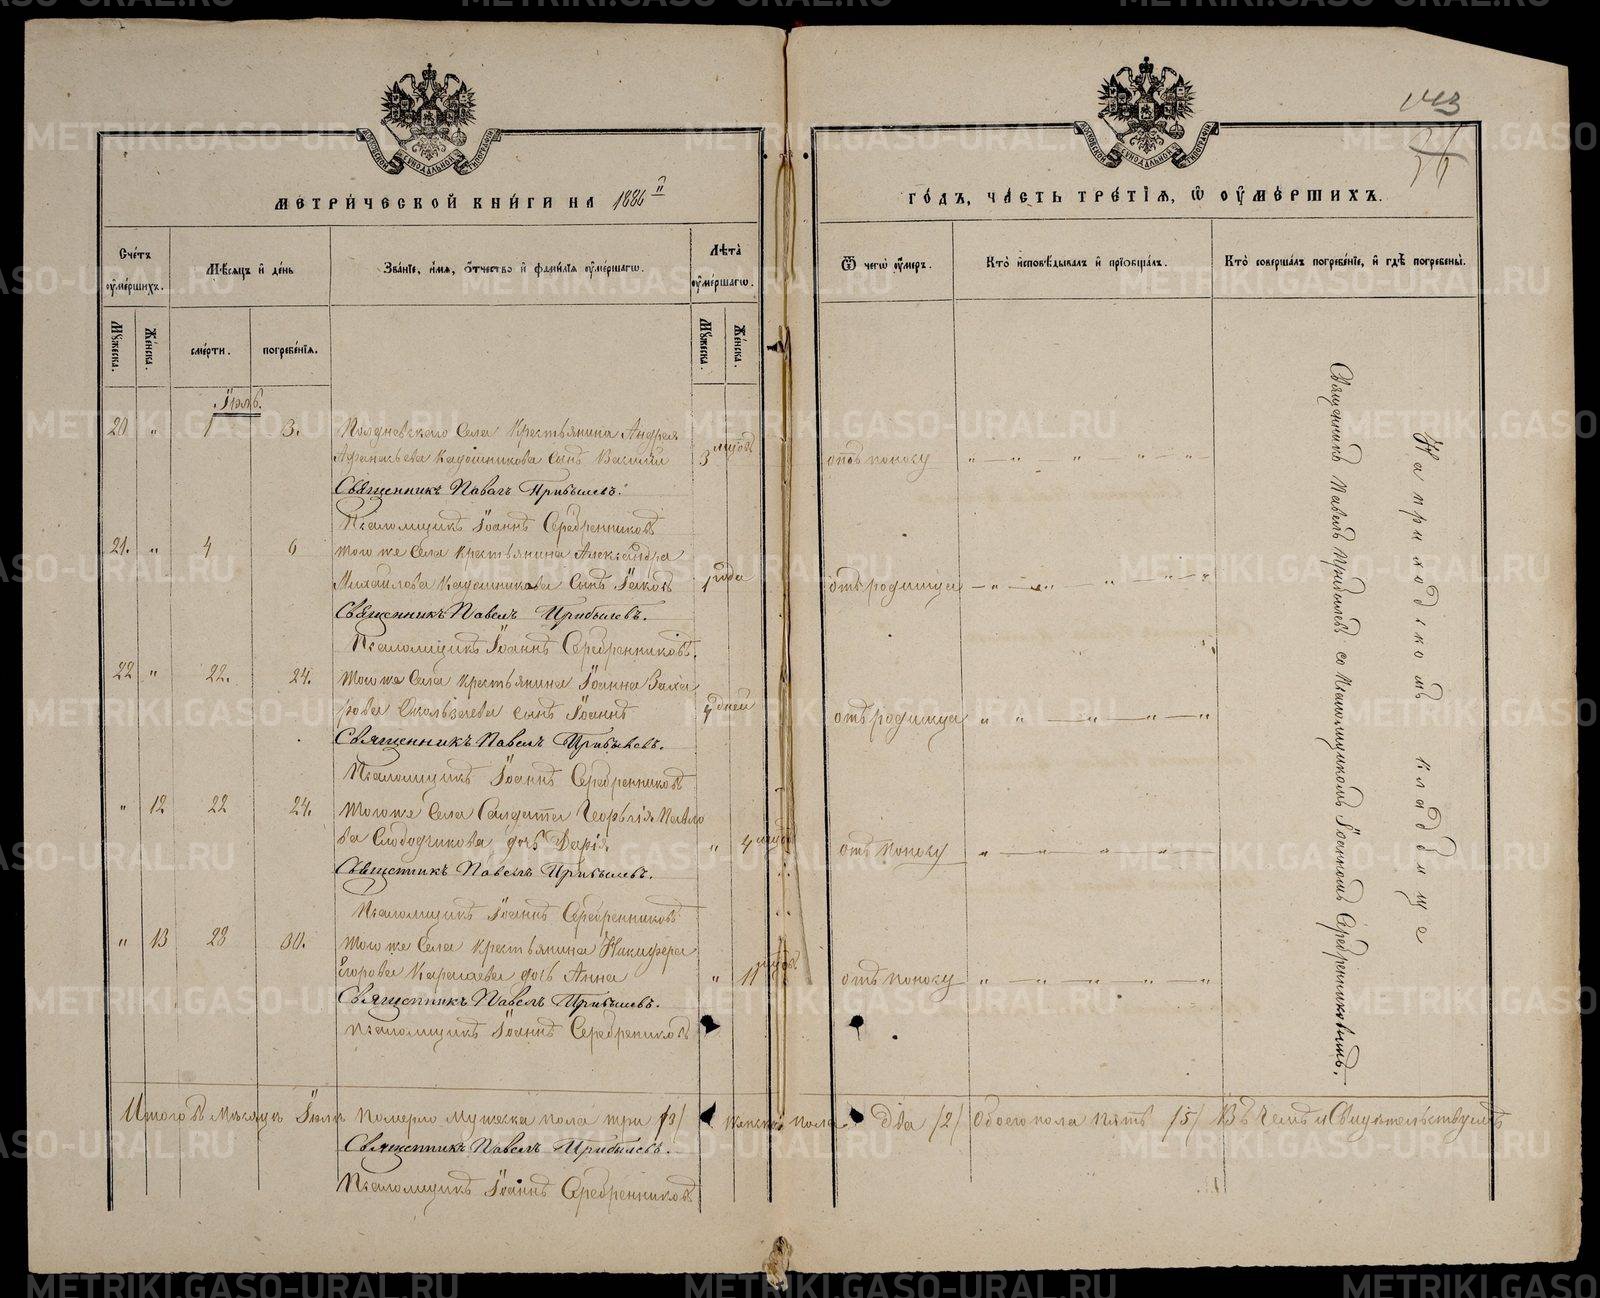 МЕТРИЧЕСКОЙ КНИГИ НА 1886 й
ГОДЪ, ЧАСТЬ ТРЕТІЯ, Ѡ ОУМЕРШИХЪ.
143
Счетъ оумершихъ.
Мѣсяцъ и день
Званіе, имя, отчество и фамилія оумершагѡ.
Лѣта оумершагѡ.
Ѿ чегѡ оумеръ.
Кто исповѣдывалъ и пріобщалъ.
Кто совершалъ погребеніе, и гдѣ погребены.
Мужеска.
Женска.
смерти.
погребенія.
Мужеска.
Женска.
Іюль.
20 " 1 3. Полдневскаго Села Крестьянина Андрея
Афанасьева Кадошникова Сынъ Василій 3 отъ поносу
Священникъ Павелъ Прибылевъ.
Псаломщикъ Іоаннъ Серебренниковъ
21. " 4 6 того же Села Крестьянина Александра
Михайлова Кадошникова Сынъ Іаковъ 1 года отъ родимца
Священникъ Павелъ Прибылевъ.
Псаломщикъ Іоаннъ Серебренниковъ.
22 " 22. 24. того же Села Крестьянина Іоанна Заха
рова сынъ Іоаннъ дней отъ родимца
Священникъ Павелъ Прибылевъ.
Псаломщикъ Іоаннъ Серебренниковъ
" 12 22 24. того же Села Солдата Георгія Павло
ва Слободчикова дочь Дарія. " 4 отъ поносу
Священникъ Павелъ Прибылевъ.
Псаломщикъ Іоаннъ Серебренниковъ
" 13 28 30. того же Села Крестьянина Никифора
Егорова дочь Анна " 11 отъ поносу
Священникъ Павелъ Прибылевъ.
Псаломщикъ Іоаннъ Серебрениковъ
Священникъ Павелъ Прибылевъ со Псаломщикомъ Іоанномъ Серебренниковымъ.
На приходскомъ кладбище
Итого въ Мѣсяцѣ Іюлѣ Померло мужеска пола три /3/ женска пола два /2/ Обоего пола пять /5/ Въ чемъ и Свидѣтельствуемъ
Священникъ Павелъ Прибылевъ.
Псаломщикъ Іоаннъ Серебренниковъ
METRIKI.GASO-URAL.RU